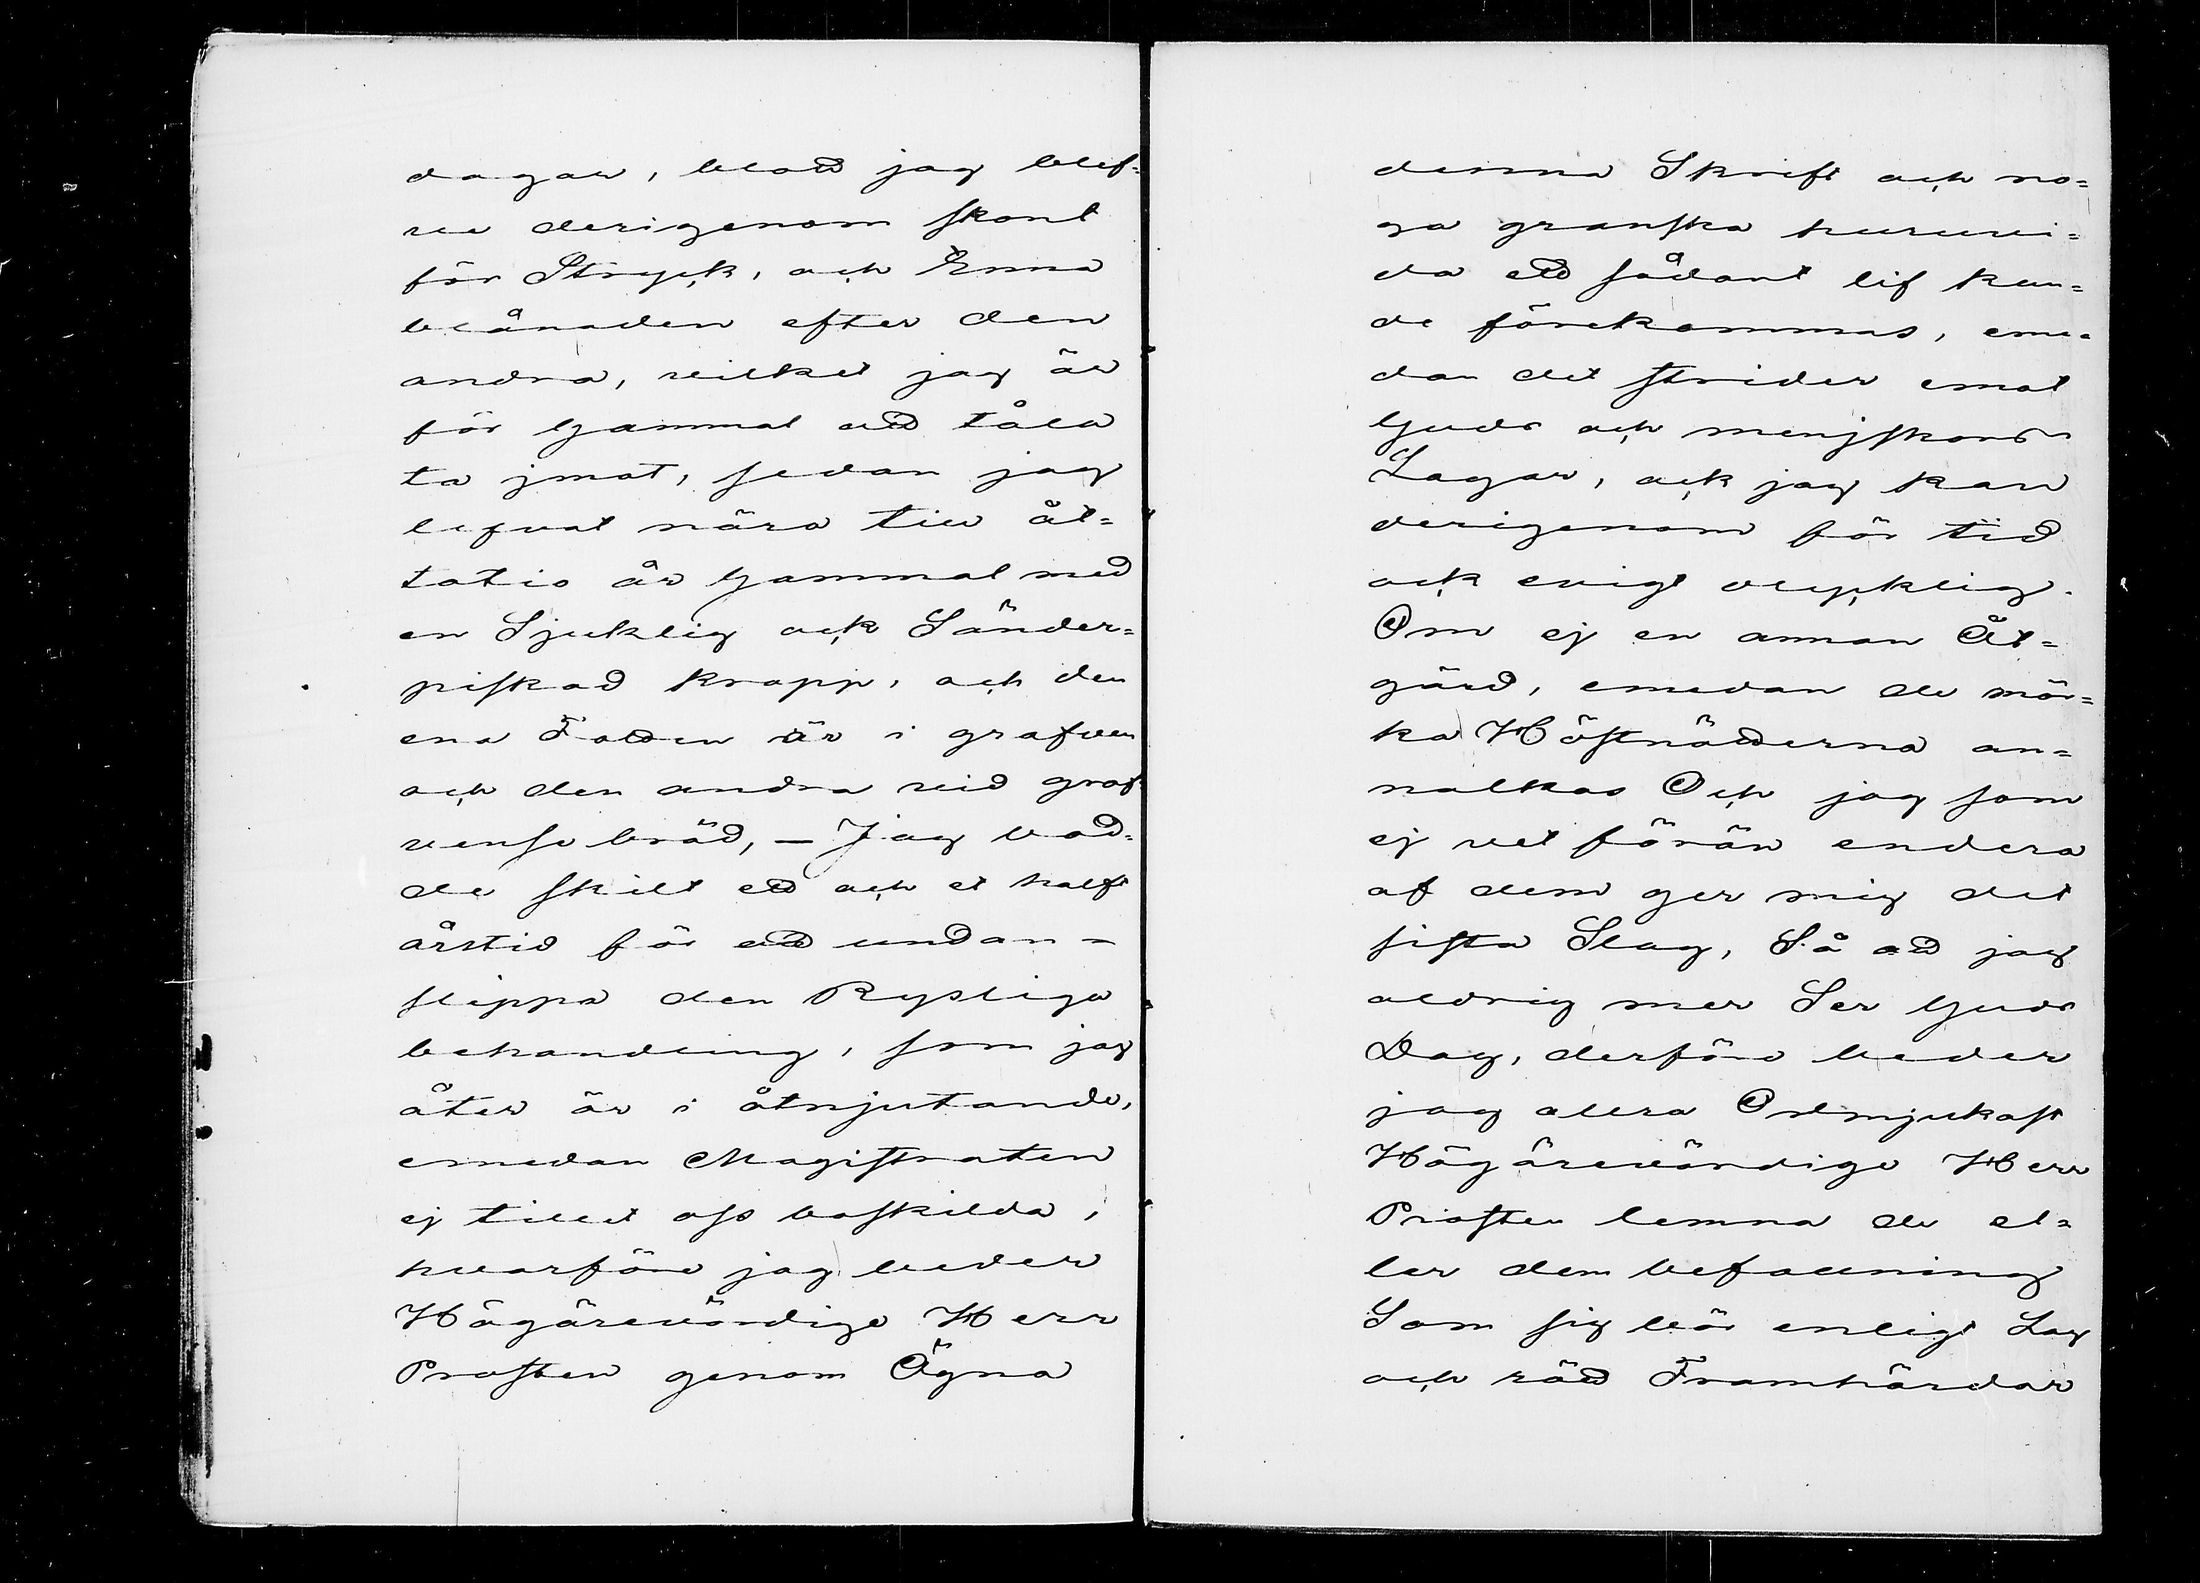 dagar, blott jag blef-
ve derigenom skont
för Stryck, och Ena
blånaden efter den
andra, vilket jag är
för Gammal att tåla
ta jmot, sedan jag
lefvat nära till åt-
tatio år Gammal med
en Sjuklig ock Sänder-
piskad kropp, och den
ena Foten är i grafven
och den andra vid graf-
vense bräd, – Jag bod-
de skilt ett och et halft
årstid för att undan-
slippa den Rysliga
behandling, som jag
åter är i åtnjutande,
emedan Magistraten
ej tillet oss boskilda,
hvarföre jag beder
Högärevördige Herr
Prosten genom Ögna
denna Skrift och no-
ga granska huruvi-
da ett sådant lif kun-
de förekommas, eme-
dan det strider emot
Guds och menjskors
Lagar, ock jag kan
derigenom för tid
ock evigt olycklig.
Om ej en annan Åt-
gärd, emedan de mör-
ka Höstnätterna an-
nalkas Och jag som
ej vet förän endera
af dem ger mig det
sista Slag, Så att jag
aldrig mer Ser Guds
Dag, derföre beder
jag allra Ödmjukast
Högärevördige Herr
Prosten lemna de el-
ler dem befallning
Som sig bör enligt Lag
och rätt Framhärdar